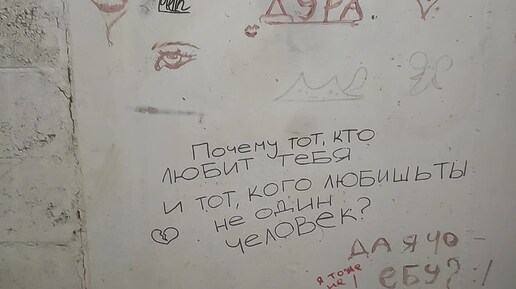 ДУРА
Почему тот, кто
ЛЮБИТ ТЕБЯ
И ТОТ, КОГО ЛЮБИШЬ ТЫ
НЕ ОДИН
ЧЕЛОВЕК?
ДА Я ЧО-
ЕБУ? :/
я тоже
не!